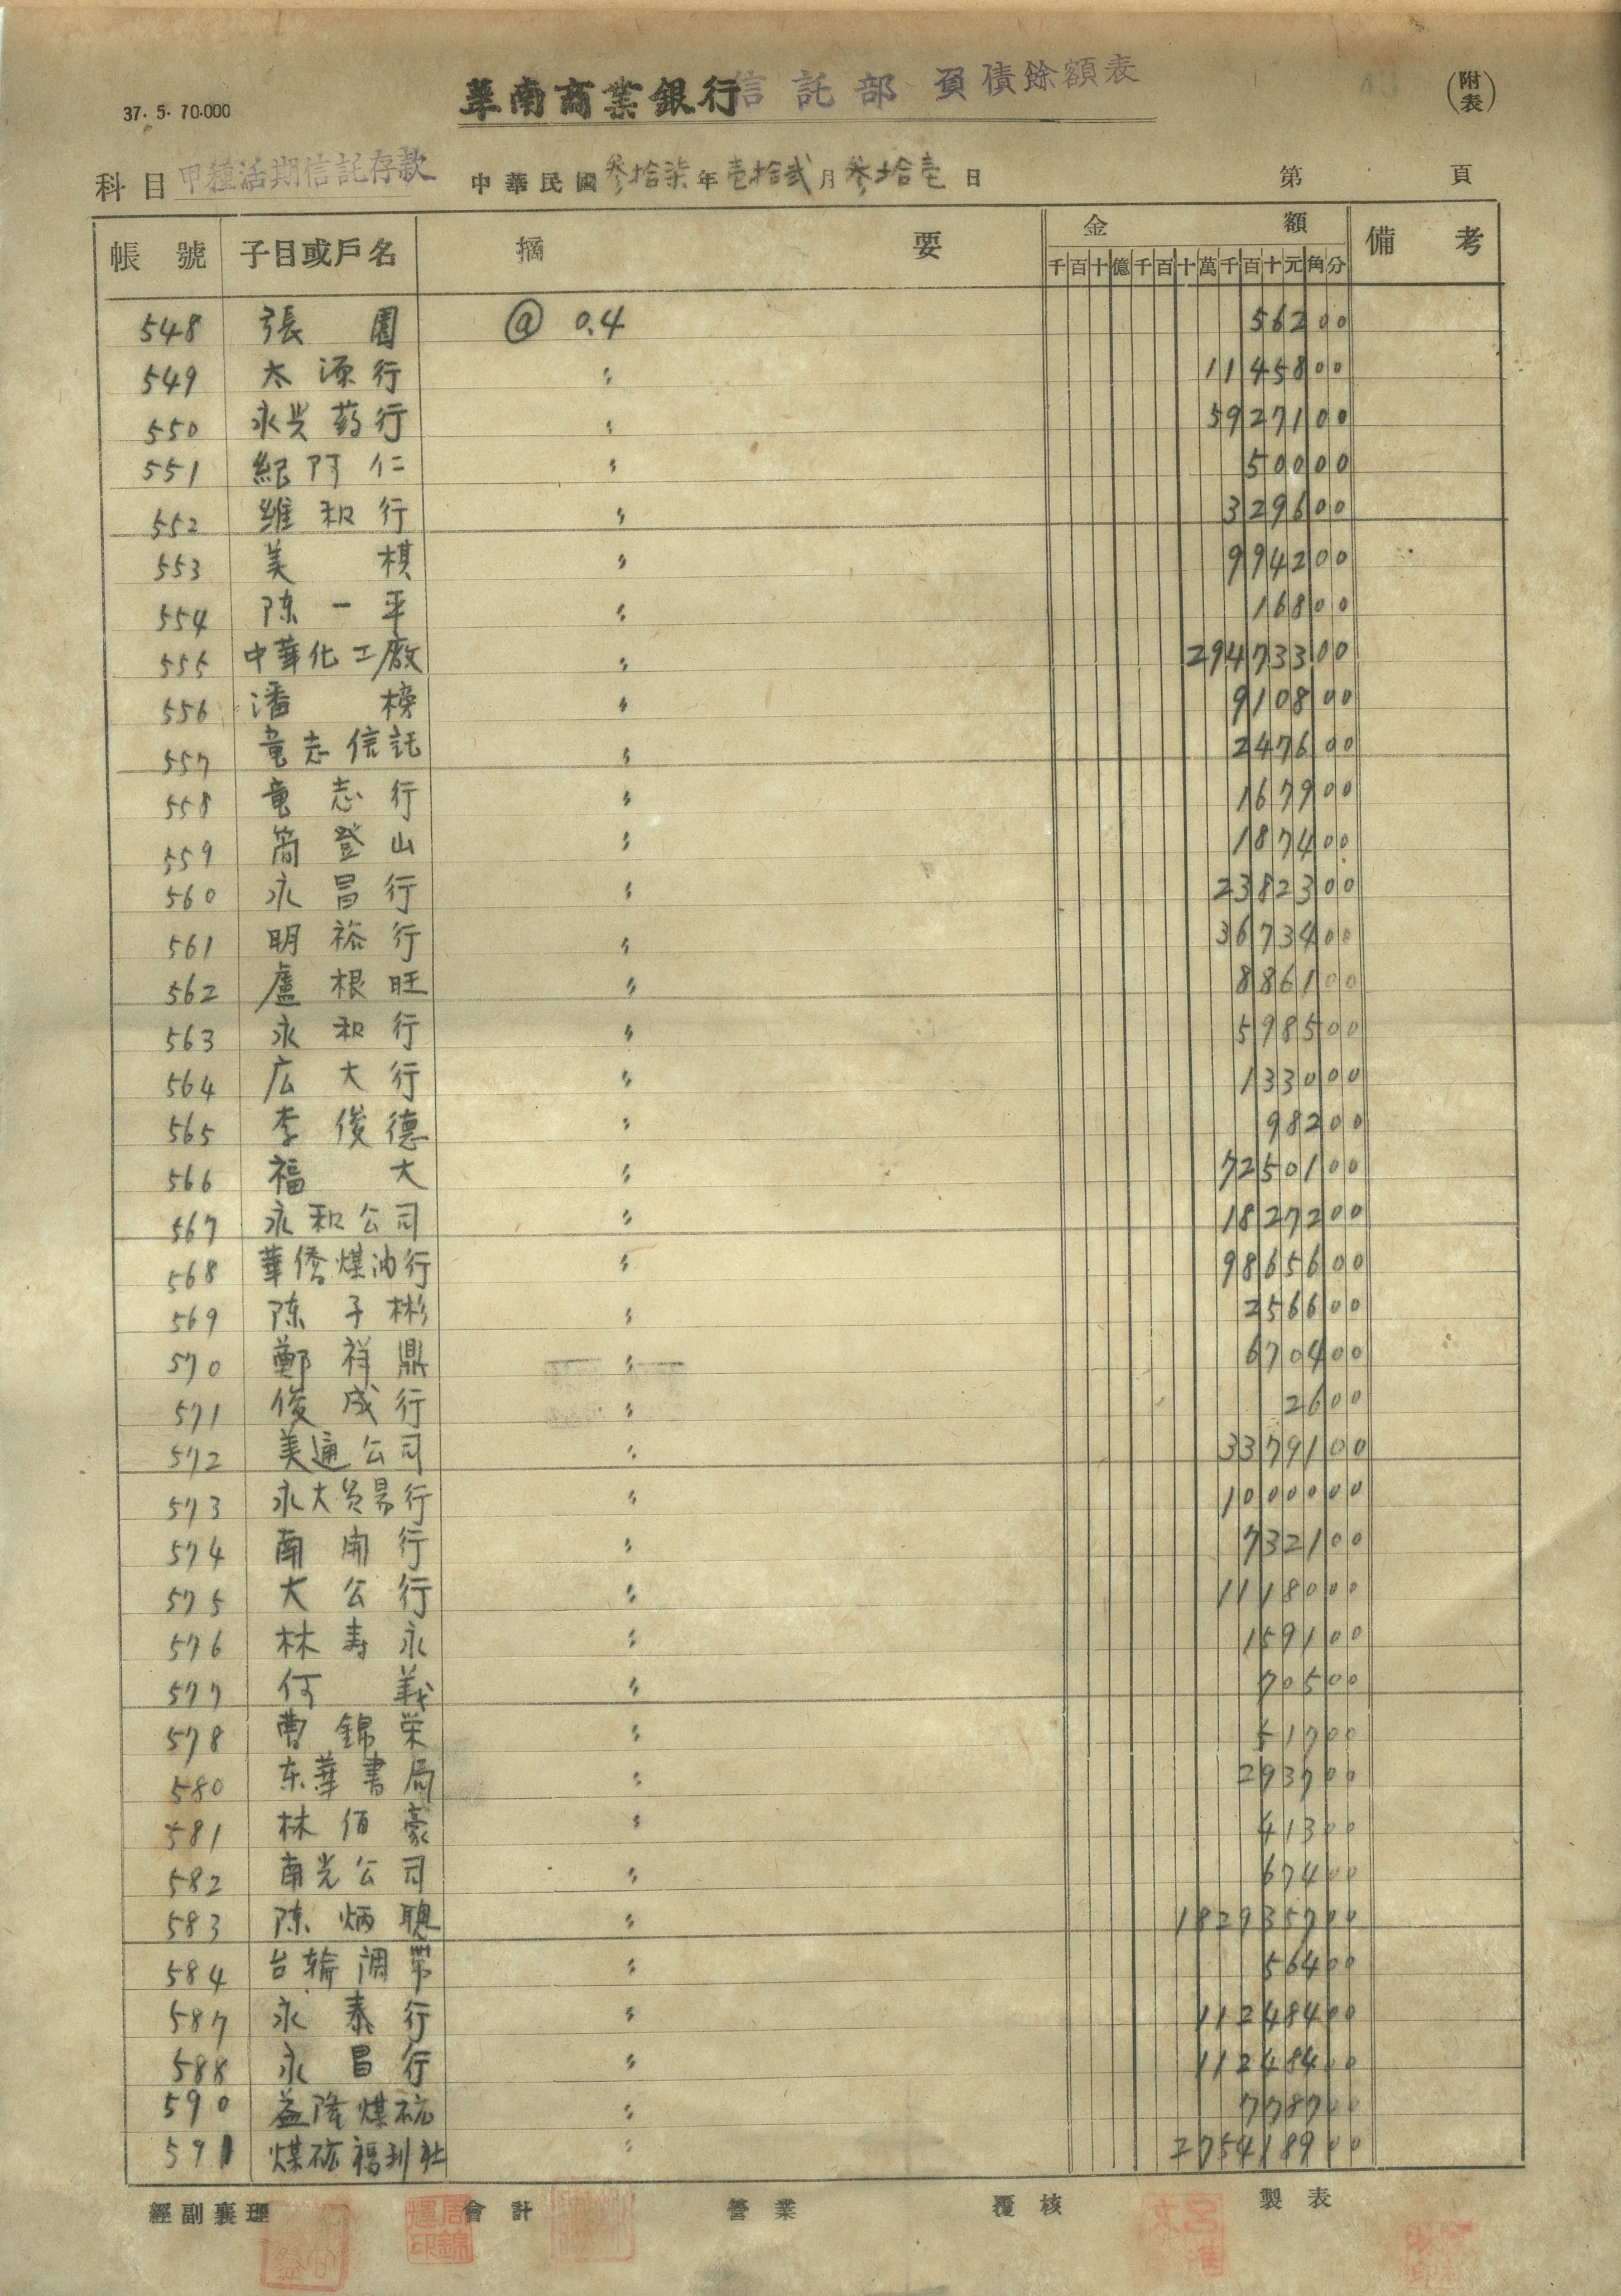 37. 5. 70.000
華南商業銀行信託部 負債餘額表
(附表)
科目 甲種活期信託存款 中華民國參拾柒年壱拾弍月參拾壱日 第 頁
帳號 子目或戶名 摘要 金額 備考
千百十億千百十萬千百十元角分
548 張園 @ 0.4 56200
549 太源行 〃 1145800
550 永兴药行 〃 5927100
551 紀阿仁 〃 50000
552 維和行 〃 329600
553 美棋 〃 994200
554 陈一平 〃 16800
555 中華化工廠 〃 29473300
556 潘榜 〃 910800
557 竜志信託 〃 247600
558 竜志行 〃 167900
559 簡登山 〃 187400
560 永昌行 〃 2382300
561 明裕行 〃 3673400
562 盧根旺 〃 886100
563 永和行 〃 598500
564 広大行 〃 133000
565 李俊德 〃 98200
566 福大 〃 7250100
567 永和公司 〃 1827200
568 華僑煤油行 〃 9865600
569 陈子彬 〃 256600
570 鄭祥鼎 〃 670400
571 俊成行 〃 2600
572 美通公司 〃 3379100
573 永大貿易行 〃 1000000
574 南開行 〃 732100
575 大公行 〃 1118000
576 林寿永 〃 159100
577 何義 〃 70500
578 曹錦栄 〃 51700
580 东華書局 〃 293700
581 林佰豪 〃 41300
582 南光公司 〃 67400
583 陈炳聰 〃 182935700
584 台輪調帯 〃 56400
587 永泰行 〃 11248400
588 永昌行 〃 11248400
590 益隆煤砿 〃 778700
591 煤砿福利社 〃 275418900
經副襄理 會計 營業 覆核 製表